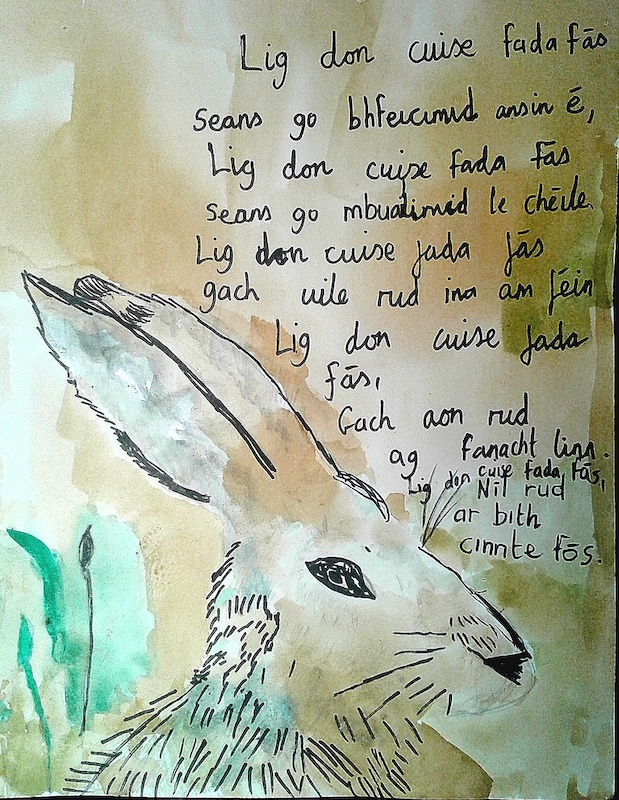 Lig don cuise fada fās
Seans go bhfeicimid ansin é,
Lig don cuise fada Fās
seans go mbuailimid le chēile.
Lig don cuise fada fās
gach uile rud ina am féin
Lig don cuise fada
fās,
Gach aon rud
ag fanacht linn.
Lig don cuise fada fās,
Níl rud
ar bith
cinnte fōs.